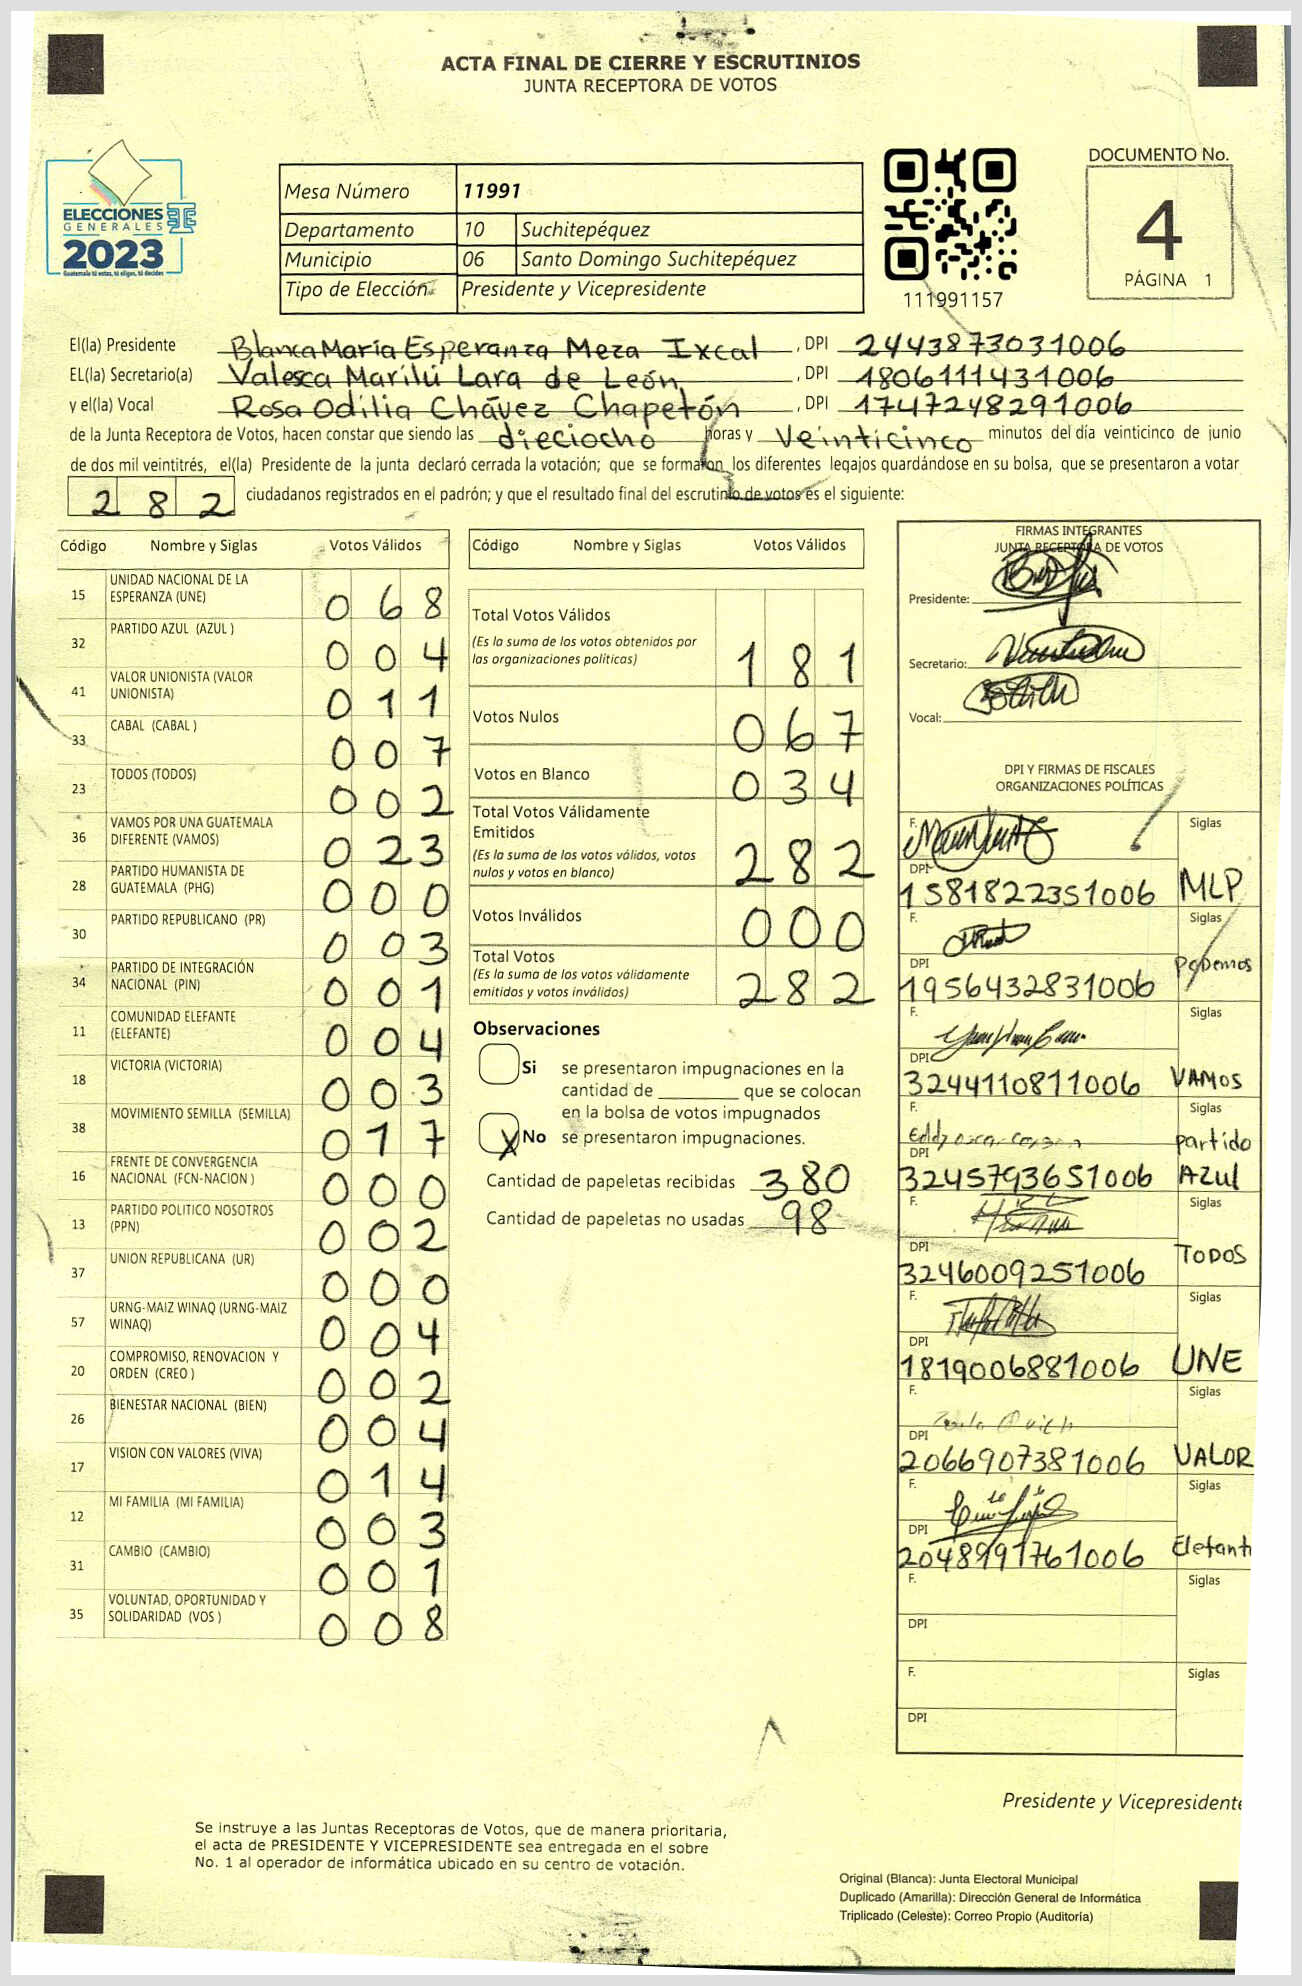 ACTA FINAL DE CIERRE Y ESCRUTINIOS
JUNTA RECEPTORA DE VOTOS
ELECCIONES
GENERALES
2023
Guatemala tú votas, tú eliges, tú decides
Mesa Número 11991
Departamento 10 Suchitepéquez
Municipio 06 Santo Domingo Suchitepéquez
Tipo de Elección Presidente y Vicepresidente
111991157
DOCUMENTO No.
4
PÁGINA 1
El(la) Presidente Blanca María Esperanza Meza Ixcal , DPI 2443873031006
EL(la) Secretario(a) Valesca Marilú Lara de León , DPI 1806111431006
y el(la) Vocal Rosa Odilia Chávez Chapetón , DPI 1747248291006
de la Junta Receptora de Votos, hacen constar que siendo las dieciocho horas y veinticinco minutos del día veinticinco de junio
de dos mil veintitrés, el(la) Presidente de la junta declaró cerrada la votación; que se formaron los diferentes legajos guardándose en su bolsa, que se presentaron a votar
282 ciudadanos registrados en el padrón; y que el resultado final del escrutinio de votos es el siguiente:
Código Nombre y Siglas Votos Válidos
15 UNIDAD NACIONAL DE LA ESPERANZA (UNE) 068
32 PARTIDO AZUL (AZUL ) 004
41 VALOR UNIONISTA (VALOR UNIONISTA) 011
33 CABAL (CABAL ) 007
23 TODOS (TODOS) 002
36 VAMOS POR UNA GUATEMALA DIFERENTE (VAMOS) 023
28 PARTIDO HUMANISTA DE GUATEMALA (PHG) 000
30 PARTIDO REPUBLICANO (PR) 003
34 PARTIDO DE INTEGRACIÓN NACIONAL (PIN) 001
11 COMUNIDAD ELEFANTE (ELEFANTE) 004
18 VICTORIA (VICTORIA) 003
38 MOVIMIENTO SEMILLA (SEMILLA) 017
16 FRENTE DE CONVERGENCIA NACIONAL (FCN-NACION ) 000
13 PARTIDO POLITICO NOSOTROS (PPN) 002
37 UNION REPUBLICANA (UR) 000
57 URNG-MAIZ WINAQ (URNG-MAIZ WINAQ) 004
20 COMPROMISO, RENOVACION Y ORDEN (CREO ) 002
26 BIENESTAR NACIONAL (BIEN) 004
17 VISION CON VALORES (VIVA) 014
12 MI FAMILIA (MI FAMILIA) 003
31 CAMBIO (CAMBIO) 001
35 VOLUNTAD, OPORTUNIDAD Y SOLIDARIDAD (VOS ) 008
Código Nombre y Siglas Votos Válidos
Total Votos Válidos
(Es la suma de los votos obtenidos por
las organizaciones políticas) 181
Votos Nulos 067
Votos en Blanco 034
Total Votos Válidamente
Emitidos
(Es la suma de los votos válidos, votos
nulos y votos en blanco) 282
Votos Inválidos 000
Total Votos
(Es la suma de los votos válidamente
emitidos y votos inválidos) 282
Observaciones
Si se presentaron impugnaciones en la
cantidad de ________ que se colocan
en la bolsa de votos impugnados
X No se presentaron impugnaciones.
Cantidad de papeletas recibidas 380
Cantidad de papeletas no usadas 98
FIRMAS INTEGRANTES
JUNTA RECEPTORA DE VOTOS
Presidente:
Secretario:
Vocal:
DPI Y FIRMAS DE FISCALES
ORGANIZACIONES POLÍTICAS
F. Siglas
DPI 1581822351006 MLP
F. Siglas
DPI 1956432831006 Podemos
F. Siglas
DPI 3244110811006 VAMOS
F. Siglas
DPI 3245793651006 partido Azul
F. Siglas
DPI 3246009251006 TODOS
F. Siglas
DPI 1819006881006 UNE
F. Siglas
DPI 2066907381006 VALOR
F. Siglas
DPI 2048991761006 Elefant
F. Siglas
DPI
F. Siglas
DPI
Presidente y Vicepresidente
Se instruye a las Juntas Receptoras de Votos, que de manera prioritaria,
el acta de PRESIDENTE Y VICEPRESIDENTE sea entregada en el sobre
No. 1 al operador de informática ubicado en su centro de votación.
Original (Blanca): Junta Electoral Municipal
Duplicado (Amarilla): Dirección General de Informática
Triplicado (Celeste): Correo Propio (Auditoría)